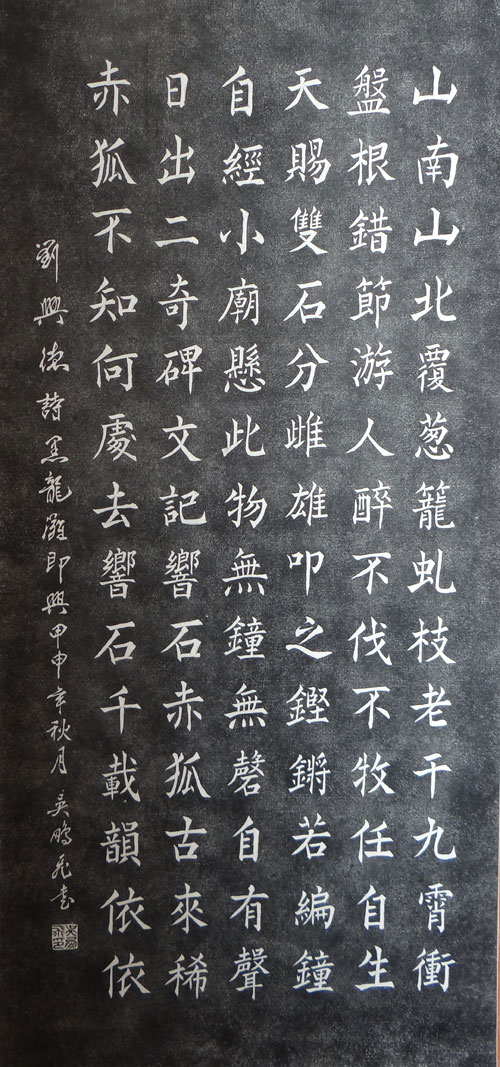 山南山北覆葱籠虬枝老干九霄衝
盤根錯節游人醉不伐不牧任自生
天賜雙石分雌雄叩之鏗鏘若編鐘
自經小廟懸此物無鐘無磬自有聲
日出二奇碑文記響石赤狐古來稀
赤狐不知何處去響石千載韻依依
劉興德詩黑龍灘即興甲申年秋月吳鵬飛書